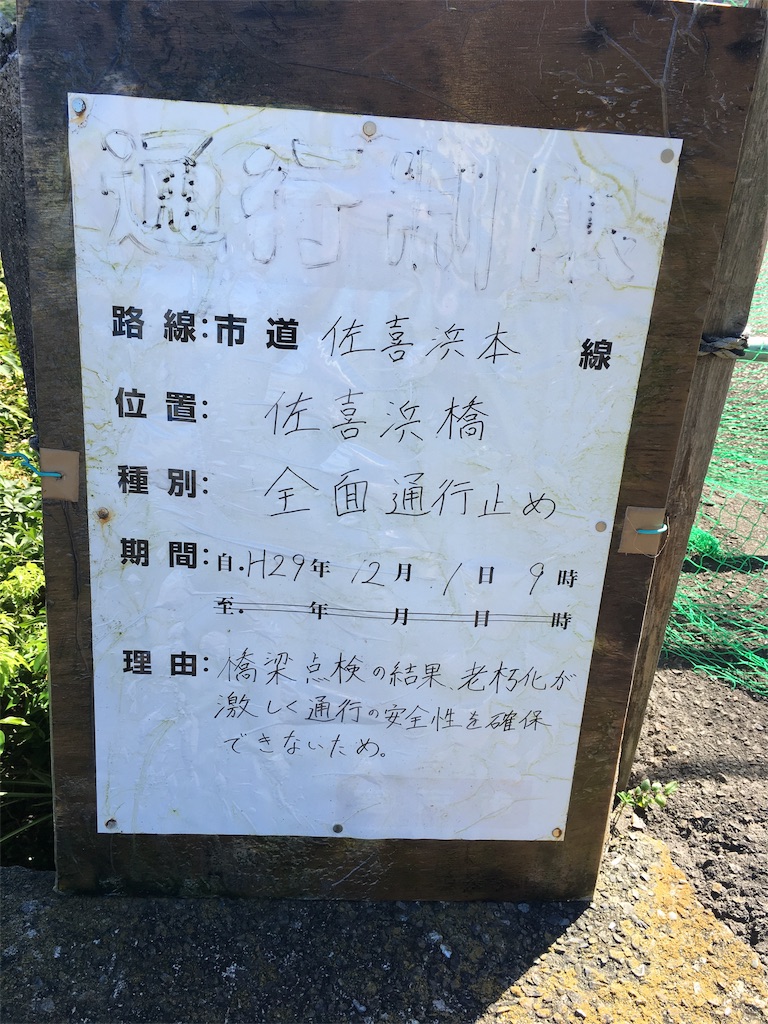 通行制限
路線：市道 佐喜浜本 線
位置： 佐喜浜橋
種別： 全面通行止め
期間：自.H29年 12月 1日 9時
至. 年 月 日 時
理由：橋梁点検の結果、老朽化が
激しく通行の安全性を確保
できないため。